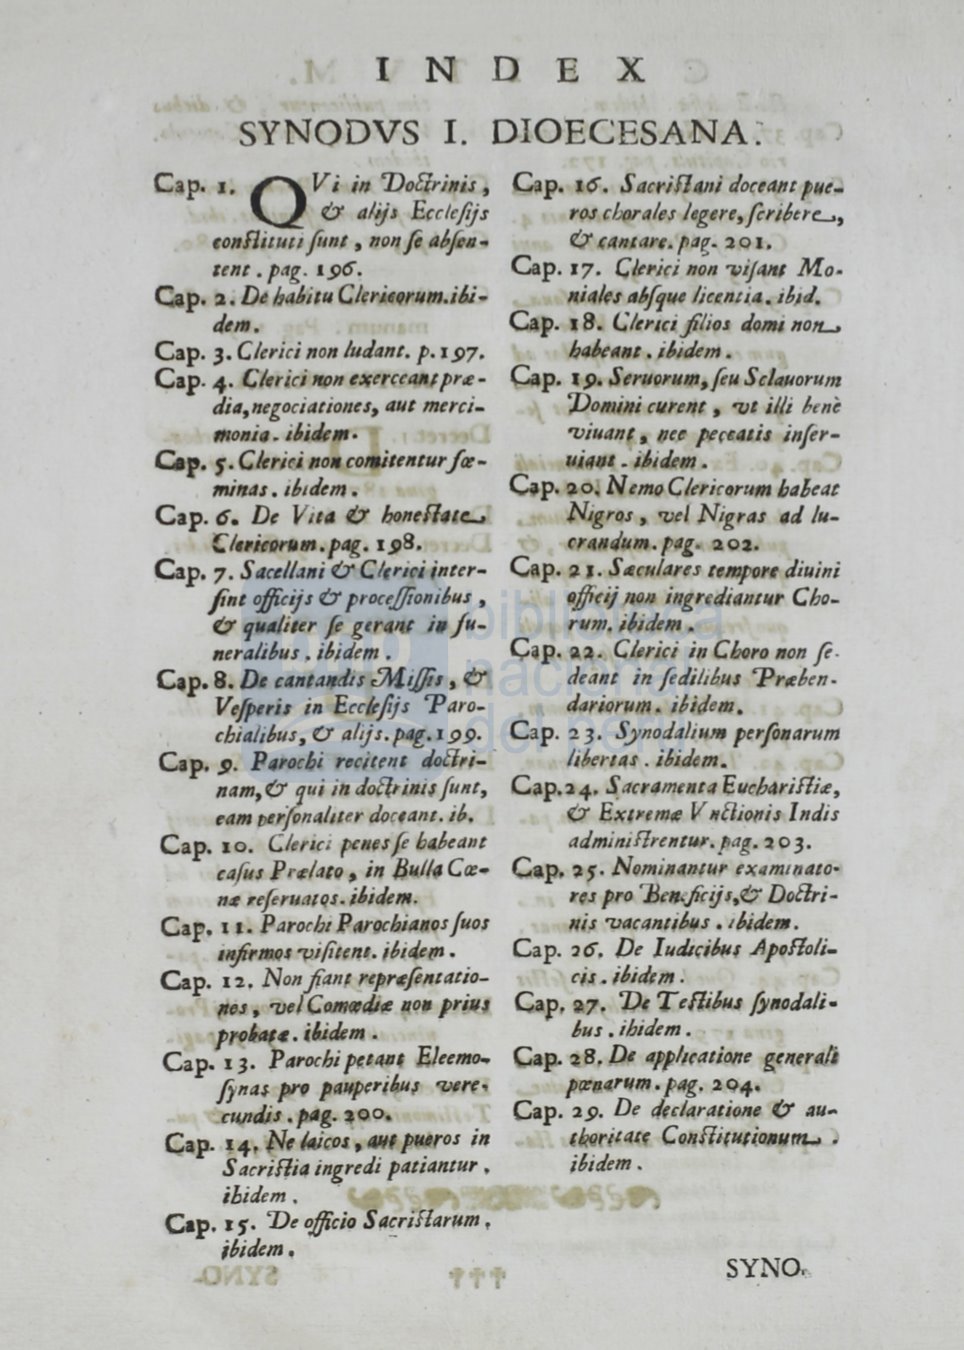 INDEX
SYNODVS I. DIOECESANA.
Cap. 1. QVi in Doctrinis,
& alijs Ecclesijs
constituti sunt, non se absen-
tent. pag. 196.
Cap. 2. De habitu Clericorum. ibi-
dem.
Cap. 3. Clerici non ludant. p. 197.
Cap. 4. Clerici non exerceant præ-
dia, negociationes, aut merci-
monia. ibidem.
Cap. 5. Clerici non comitentur fœ-
minas. ibidem.
Cap. 6. De Vita & honestate
Clericorum. pag. 198.
Cap. 7. Sacellani & Clerici inter-
sint officijs & processionibus,
& qualiter se gerant in fu-
neralibus. ibidem.
Cap. 8. De cantandis Missis, &
Vesperis in Ecclesijs Paro-
chialibus, & alijs. pag. 199.
Cap. 9. Parochi recitent doctri-
nam, & qui in doctrinis sunt,
eam personaliter doceant. ib.
Cap. 10. Clerici penes se habeant
casus Prælato, in Bulla Cœ-
næ reseruatos. ibidem.
Cap. 11. Parochi Parochianos suos
infirmos visitent. ibidem.
Cap. 12. Non fiant repræsentatio-
nes, vel Comœdiæ non prius
probatæ. ibidem.
Cap. 13. Parochi petant Eleemo-
synas pro pauperibus vere-
cundis. pag. 200.
Cap. 14. Ne laicos, aut pueros in
Sacristia ingredi patiantur.
ibidem.
Cap. 15. De officio Sacristarum.
ibidem.
Cap. 16. Sacristani doceant pue-
ros chorales legere, scribere,
& cantare. pag. 201.
Cap. 17. Clerici non visant Mo-
niales absque licentia. ibid.
Cap. 18. Clerici filios domi non
habeant. ibidem.
Cap. 19. Seruorum, seu Sclauorum
Domini curent, vt illi benè
viuant, nec peccatis inser-
uiant. ibidem.
Cap. 20. Nemo Clericorum habeat
Nigros, vel Nigras ad lu-
crandum. pag. 202.
Cap. 21. Sæculares tempore diuini
officij non ingrediantur Cho-
rum. ibidem.
Cap. 22. Clerici in Choro non se-
deant in sedilibus Præben-
dariorum. ibidem.
Cap. 23. Synodalium personarum
libertas. ibidem.
Cap. 24. Sacramenta Eucharistiæ,
& Extremæ Vnctionis Indis
administrentur. pag. 203.
Cap. 25. Nominantur examinato-
res pro Beneficijs, & Doctri-
nis vacantibus. ibidem.
Cap. 26. De Iudicibus Apostoli-
cis. ibidem.
Cap. 27. De Testibus synodali-
bus. ibidem.
Cap. 28. De applicatione generali
pœnarum. pag. 204.
Cap. 29. De declaratione & au-
thoritate Constitutionum.
ibidem.
SYNO.
biblioteca
nacional
del perú